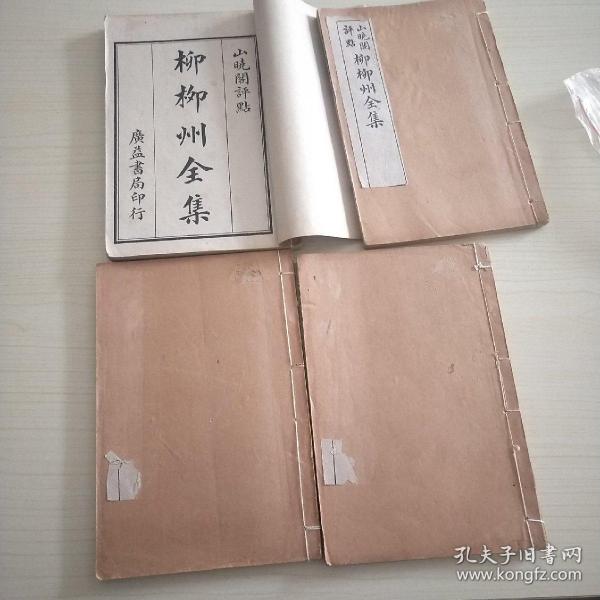 山曉閣評點
柳柳州全集
廣益書局印行
山曉閣
評點
柳柳州全集
孔夫子旧书网
www.kongfz.com